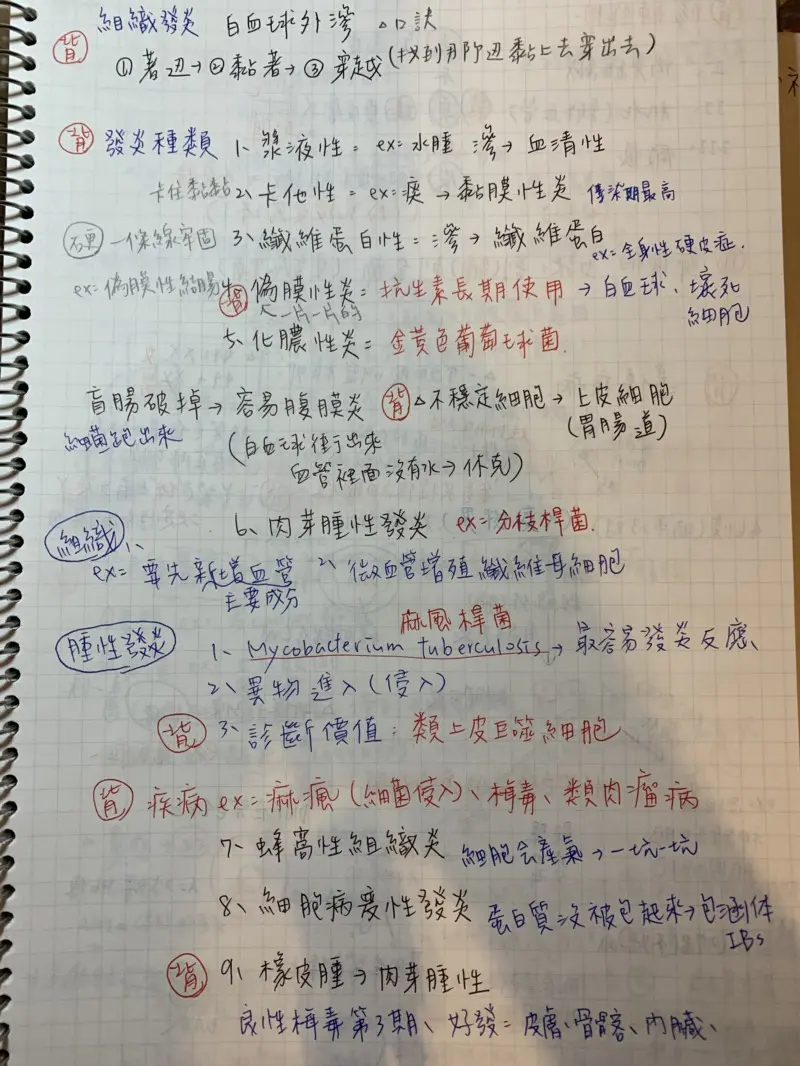 組織發炎 白血球外滲 △口訣
背 ①著边→②黏著→③穿越(找到用阶边黏上去穿出去)
背 發炎種類 1、漿液性= ex=水腫 滲→血清性
卡住黏黏 2、卡他性= ex=痰→黏膜性炎 傳染期最高
硬 一條線牢固 3、纖維蛋白性=滲→纖維蛋白
ex=全身性硬皮症.
ex=偽膜性結腸 背 偽膜性炎=抗生素長期使用→白血球、壞死細胞
一片一片的
5、化膿性炎=金黃色葡萄球菌.
盲腸破掉→容易腹膜炎 背 △不穩定細胞→上皮細胞
細菌跑出來 (白血球往于出來 (胃腸道)
血管裡面沒有水→休克)
6、肉芽腫性發炎 ex=分枝桿菌.
組織 1、
ex=要先新增血管 2、微血管增殖纖維母細胞
主要成分
麻風桿菌
腫性發炎 1、Mycobacterium tuberculosis→最容易發炎反應、
2、異物進入(侵入)
背 3、診斷價值:類上皮巨噬細胞
背 疾病ex=痲瘋(細菌侵入)、梅毒、類肉瘤病
7、蜂窩性組織炎 細胞会產氣→一坑一坑
8、細胞病变性發炎 蛋白質沒被包起來→包涵体
IBs
背 9、橡皮腫→肉芽腫性
良性梅毒第3期、好發=皮膚、骨骼、內臟、